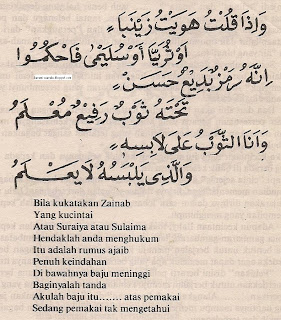 وَاِذَا قُلْتُ هَوَيْتُ زَيْنَبَاءٍ
اَوْ ثُرَيَّا اَوْ سُلَيْمٰى فَاحْكُمُوْا
اِنَّهُ رُمْزٌ بَدِيْعٌ حَسَنٌ
تَحْتَهُ ثَوْبٌ رَفِيْعٌ مُعْلَمٌ
وَاَنَا الثَّوْبُ عَلٰى لَابِسِهِ
وَالَّذِى يَلْبَسُهُ لَا يَعْلَمُ
Bila kukatakan Zainab
Yang kucintai
Atau Suraiya atau Sulaima
Hendaklah anda menghukum
Itu adalah rumus ajaib
Penuh keindahan
Di bawahnya baju meninggi
Baginyalah tanda
Akulah baju itu....... atas pemakai
Sedang pemakai tak mengetahui